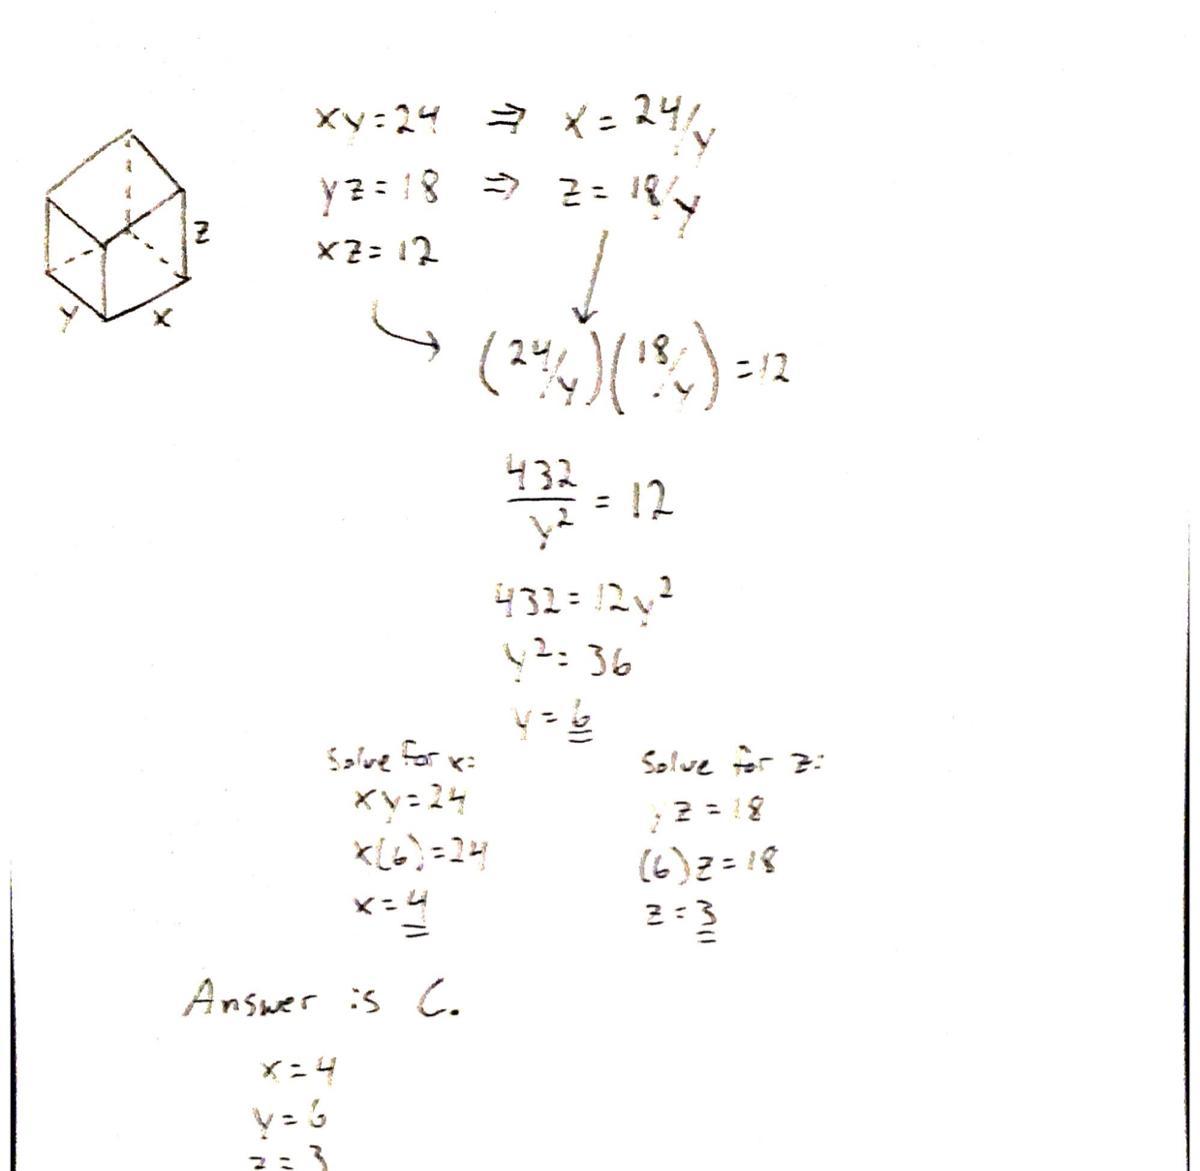 xy=24 ⇒ x = 24/y
yz=18 ⇒ z = 18/y
xz=12
z
y x
(24/y)(18/y) =12
432/y² = 12
432=12y²
y²= 36
y=6
Solve for x:
xy=24
x(6)=24
x=4
Solve for z:
yz=18
(6)z=18
z=3
Answer is C.
x=4
y=6
z=3